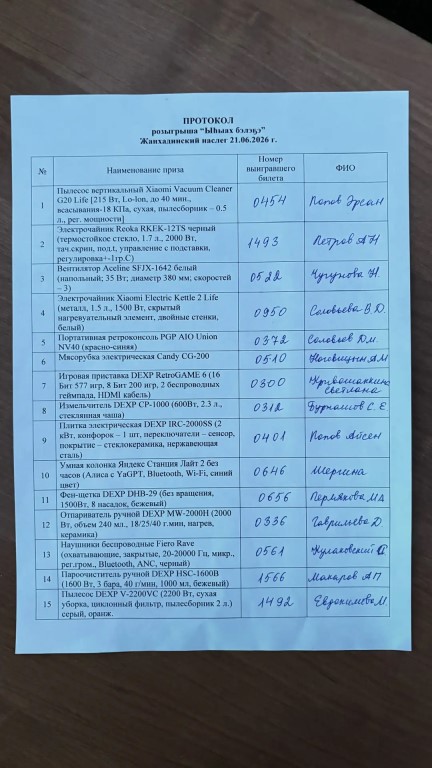 ПРОТОКОЛ
розыгрыша “Ыһыах бэлэҕэ”
Жанхадинский наслег 21.06.2026 г.
№ Наименование приза Номер выигравшего билета ФИО
1 Пылесос вертикальный Xiaomi Vacuum Cleaner
G20 Life [215 Вт, Lo-lon, до 40 мин.,
всасывания-18 КПа, сухая, пылесборник – 0.5
л., рег. мощности] 0454 Попов Эрсан
2 Электрочайник Reoka RKEK-12TS черный
(термостойкое стекло, 1.7 л., 2000 Вт,
тач.скрин, под.t, управление с подставки,
регулировка+-1гр.С) 1493 Петров АН
3 Вентилятор Aceline SFJX-1642 белый
(напольный; 35 Вт; диаметр 380 мм; скоростей
– 3) 0522 Н.
4 Электрочайник Xiaomi Electric Kettle 2 Life
(металл, 1.5 л., 1500 Вт, скрытый
нагревуательный элемент, двойные стенки,
белый) 0950 Соловьева В.D.
5 Портативная ретроконсоль PGP AIO Union
NV40 (красно-синяя) 0372 Соловьев Дм.
6 Мясорубка электрическая Candy CG-200 0510 Ноговицын А.М
7 Игровая приставка DEXP RetroGAME 6 (16
Бит 577 игр, 8 Бит 200 игр, 2 беспроводных
геймпада, HDMI кабель) 0300 Кривошапкина
Светлана
8 Измельчитель DEXP CP-1000 (600Вт, 2.3 л.,
стеклянная чаша) 0312 С. Е
9 Плитка электрическая DEXP IRC-2000SS (2
кВт, конфорок – 1 шт, переключатели – сенсор,
покрытие – стеклокерамика, нержавеющая
сталь) 0401 Попов Айсен
10 Умная колонка Яндекс Станция Лайт 2 без
часов (Алиса с YaGPT, Bluetooth, Wi-Fi, синий
цвет) 0646 Шергина
11 Фен-щетка DEXP DHB-29 (без вращения,
1500Вт, 8 насадок, бежевый) 0656 Пермякова МА
12 Отпариватель ручной DEXP MW-2000H (2000
Вт, объем 240 мл., 18/25/40 г.мин, нагрев,
керамика) 0336 Гаврильева Д
13 Наушники беспроводные Fiero Rave
(охватывающие, закрытые, 20-20000 Гц, микр.,
рег.гром., Bluetooth, ANC, черный) 0561 Кулаковский
14 Пароочиститель ручной DEXP HSC-1600B
(1600 Вт, 3 бара, 40 г/мин, 1000 мл, бежевый) 1566 Макаров АП
15 Пылесос DEXP V-2200VC (2200 Вт, сухая
уборка, циклонный фильтр, пылесборник 2 л.)
серый, оранж. 1492 Евдокимова М